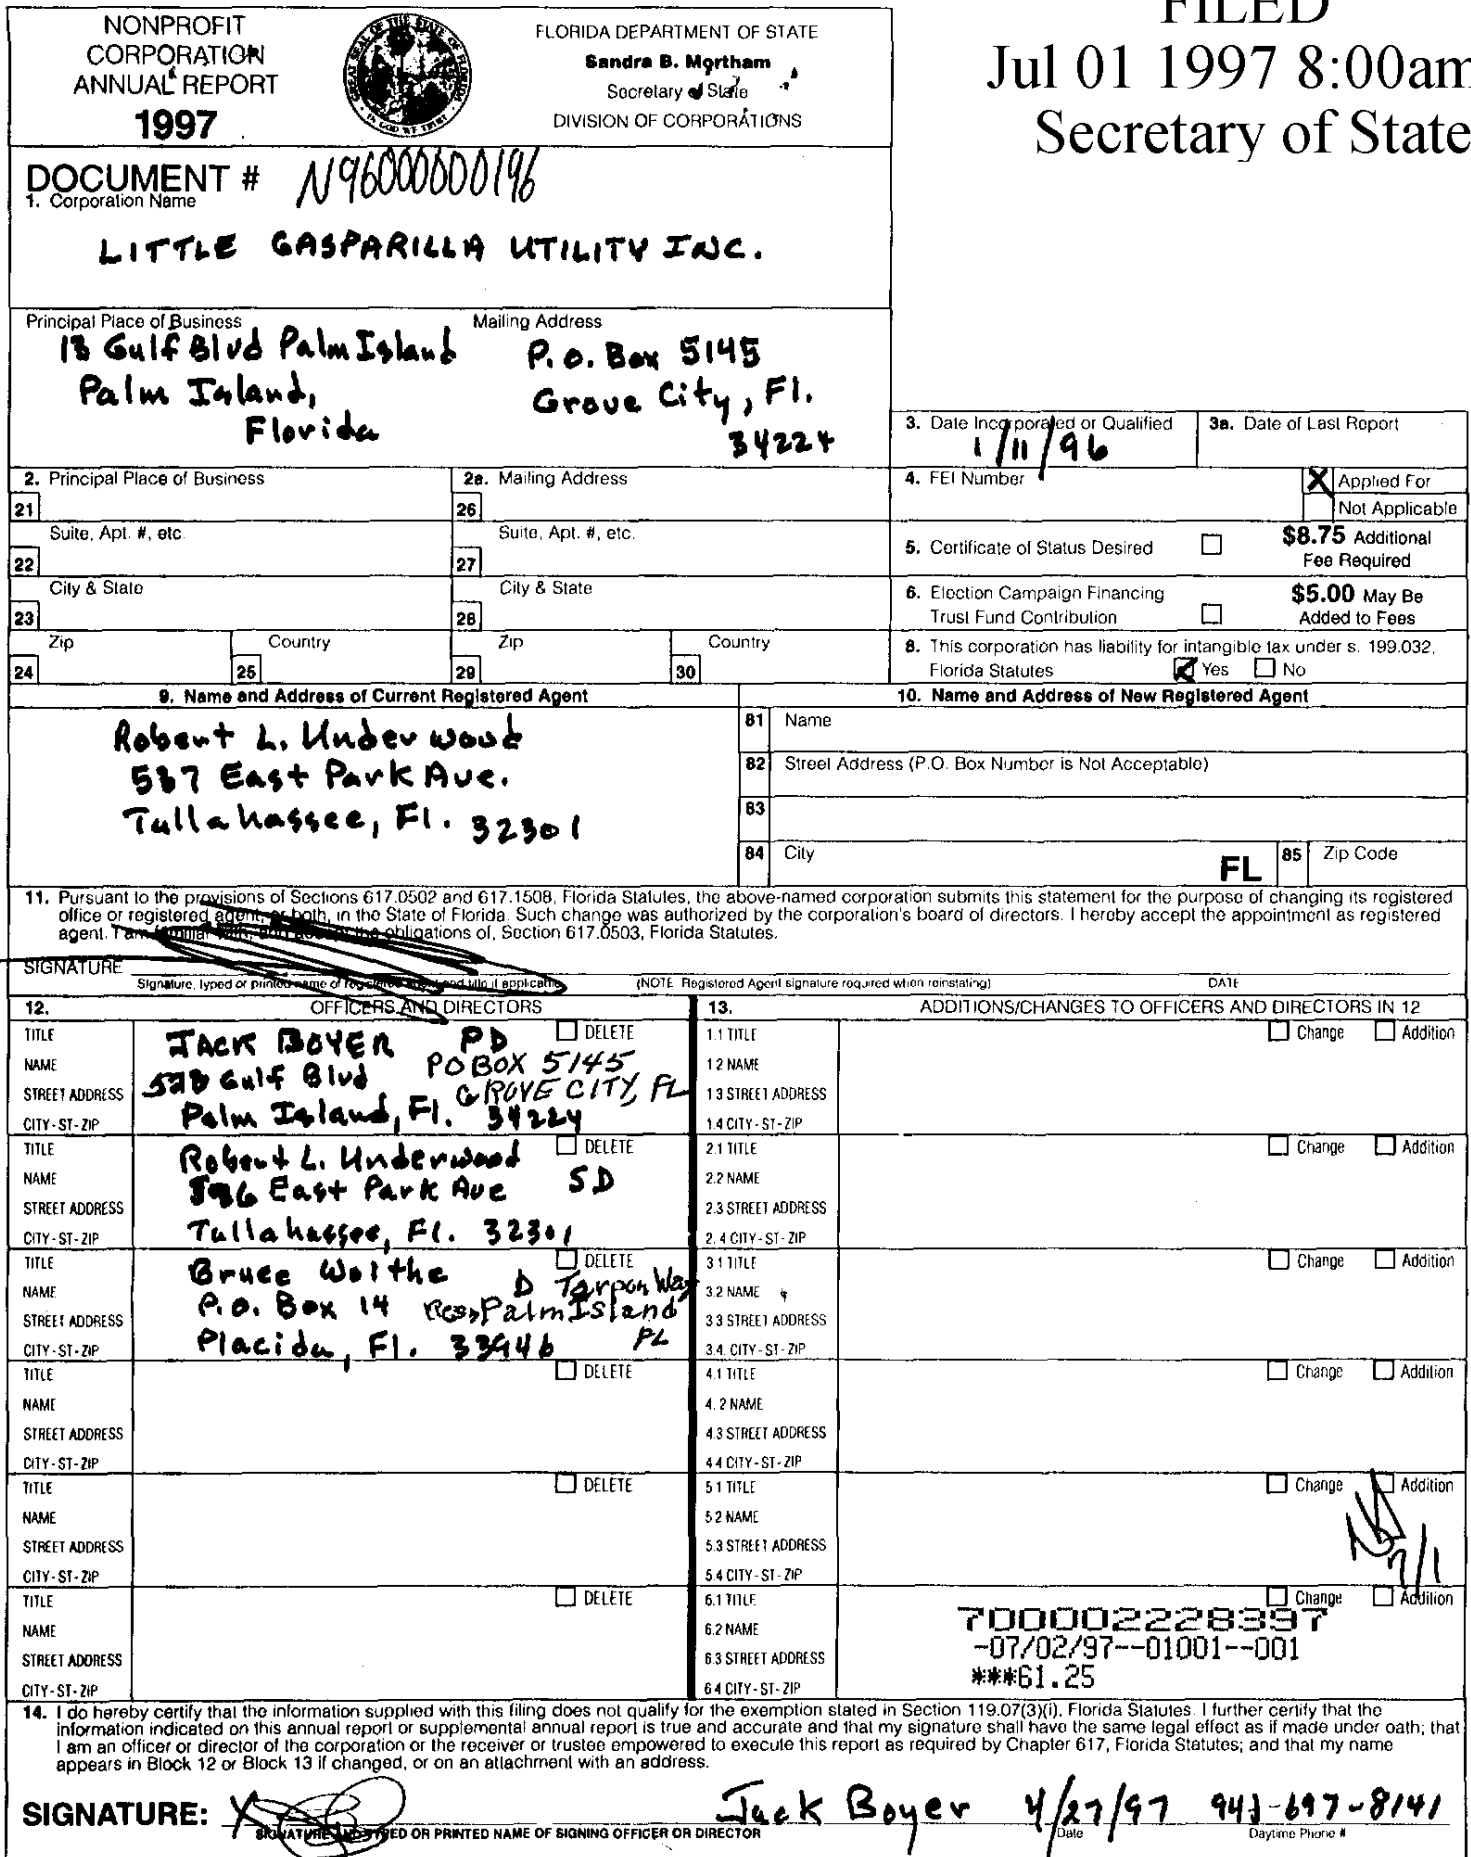 NONPROFIT
CORPORATION
ANNUAL REPORT
1997
FLORIDA DEPARTMENT OF STATE
Sandra B. Mortham
Secretary of State
DIVISION OF CORPORATIONS
FILED
Jul 01 1997 8:00am
Secretary of State
DOCUMENT # N96000000196
1. Corporation Name
LITTLE GASPARILLA UTILITY INC.
Principal Place of Business
13 Gulf Blvd Palm Island
Palm Island,
Florida
Mailing Address
P.O. Box 5145
Grove City, Fl.
34224
3. Date Incorporated or Qualified
1/11/96
3a. Date of Last Report
2. Principal Place of Business
21
Suite, Apt. #, etc.
22
City & State
23
Zip
24
Country
25
2a. Mailing Address
26
Suite, Apt. #, etc.
27
City & State
28
Zip
29
Country
30
4. FEI Number
X Applied For
Not Applicable
5. Certificate of Status Desired
$8.75 Additional
Fee Required
6. Election Campaign Financing
Trust Fund Contribution
$5.00 May Be
Added to Fees
8. This corporation has liability for intangible tax under s. 199.032,
Florida Statutes Yes No
9. Name and Address of Current Registered Agent
Robert L. Underwood
537 East Park Ave.
Tallahassee, Fl. 32301
10. Name and Address of New Registered Agent
81 Name
82 Street Address (P.O. Box Number is Not Acceptable)
83
84 City
FL
85 Zip Code
11. Pursuant to the provisions of Sections 617.0502 and 617.1508, Florida Statutes, the above-named corporation submits this statement for the purpose of changing its registered
office or registered agent, or both, in the State of Florida. Such change was authorized by the corporation's board of directors. I hereby accept the appointment as registered
agent. I am familiar with, and accept the obligations of, Section 617.0503, Florida Statutes.
SIGNATURE
Signature, typed or printed name of registered agent and title if applicable
(NOTE Registered Agent signature required when reinstating)
DATE
12. OFFICERS AND DIRECTORS
TITLE
NAME
STREET ADDRESS
CITY-ST-ZIP
DELETE
JACK BOYER PD
Gulf Blvd
PO BOX 5145
GROVE CITY, FL
Palm Island, Fl. 34224
TITLE
NAME
STREET ADDRESS
CITY-ST-ZIP
DELETE
Robert L. Underwood
East Park Ave SD
Tallahassee, Fl. 32301
TITLE
NAME
STREET ADDRESS
CITY-ST-ZIP
DELETE
Bruce Welthe
D Tarpon Way
P.O. Box 14 Res Palm Island
FL
Placida, Fl. 33946
TITLE
NAME
STREET ADDRESS
CITY-ST-ZIP
DELETE
TITLE
NAME
STREET ADDRESS
CITY-ST-ZIP
DELETE
TITLE
NAME
STREET ADDRESS
CITY-ST-ZIP
DELETE
13. ADDITIONS/CHANGES TO OFFICERS AND DIRECTORS IN 12
1.1 TITLE Change Addition
1.2 NAME
1.3 STREET ADDRESS
1.4 CITY-ST-ZIP
2.1 TITLE Change Addition
2.2 NAME
2.3 STREET ADDRESS
2.4 CITY-ST-ZIP
3.1 TITLE Change Addition
3.2 NAME
3.3 STREET ADDRESS
3.4. CITY-ST-ZIP
4.1 TITLE Change Addition
4.2 NAME
4.3 STREET ADDRESS
4.4 CITY-ST-ZIP
5.1 TITLE Change Addition
5.2 NAME
5.3 STREET ADDRESS
5.4 CITY-ST-ZIP
7/1
6.1 TITLE Change Addition
6.2 NAME
6.3 STREET ADDRESS
6.4 CITY-ST-ZIP
700002228397
-07/02/97--01001--001
***61.25
14. I do hereby certify that the information supplied with this filing does not qualify for the exemption stated in Section 119.07(3)(i), Florida Statutes. I further certify that the
information indicated on this annual report or supplemental annual report is true and accurate and that my signature shall have the same legal effect as if made under oath; that
I am an officer or director of the corporation or the receiver or trustee empowered to execute this report as required by Chapter 617, Florida Statutes; and that my name
appears in Block 12 or Block 13 if changed, or on an attachment with an address.
SIGNATURE: X Jack Boyer 4/27/97 941-697-8141
SIGNATURE AND TYPED OR PRINTED NAME OF SIGNING OFFICER OR DIRECTOR
Date
Daytime Phone #